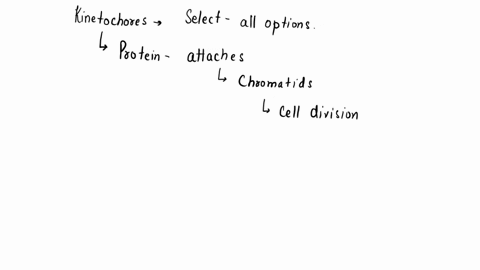 Kinetochores → Select - all options.
↳ Protein - attaches
↳ Chromatids
↳ Cell division